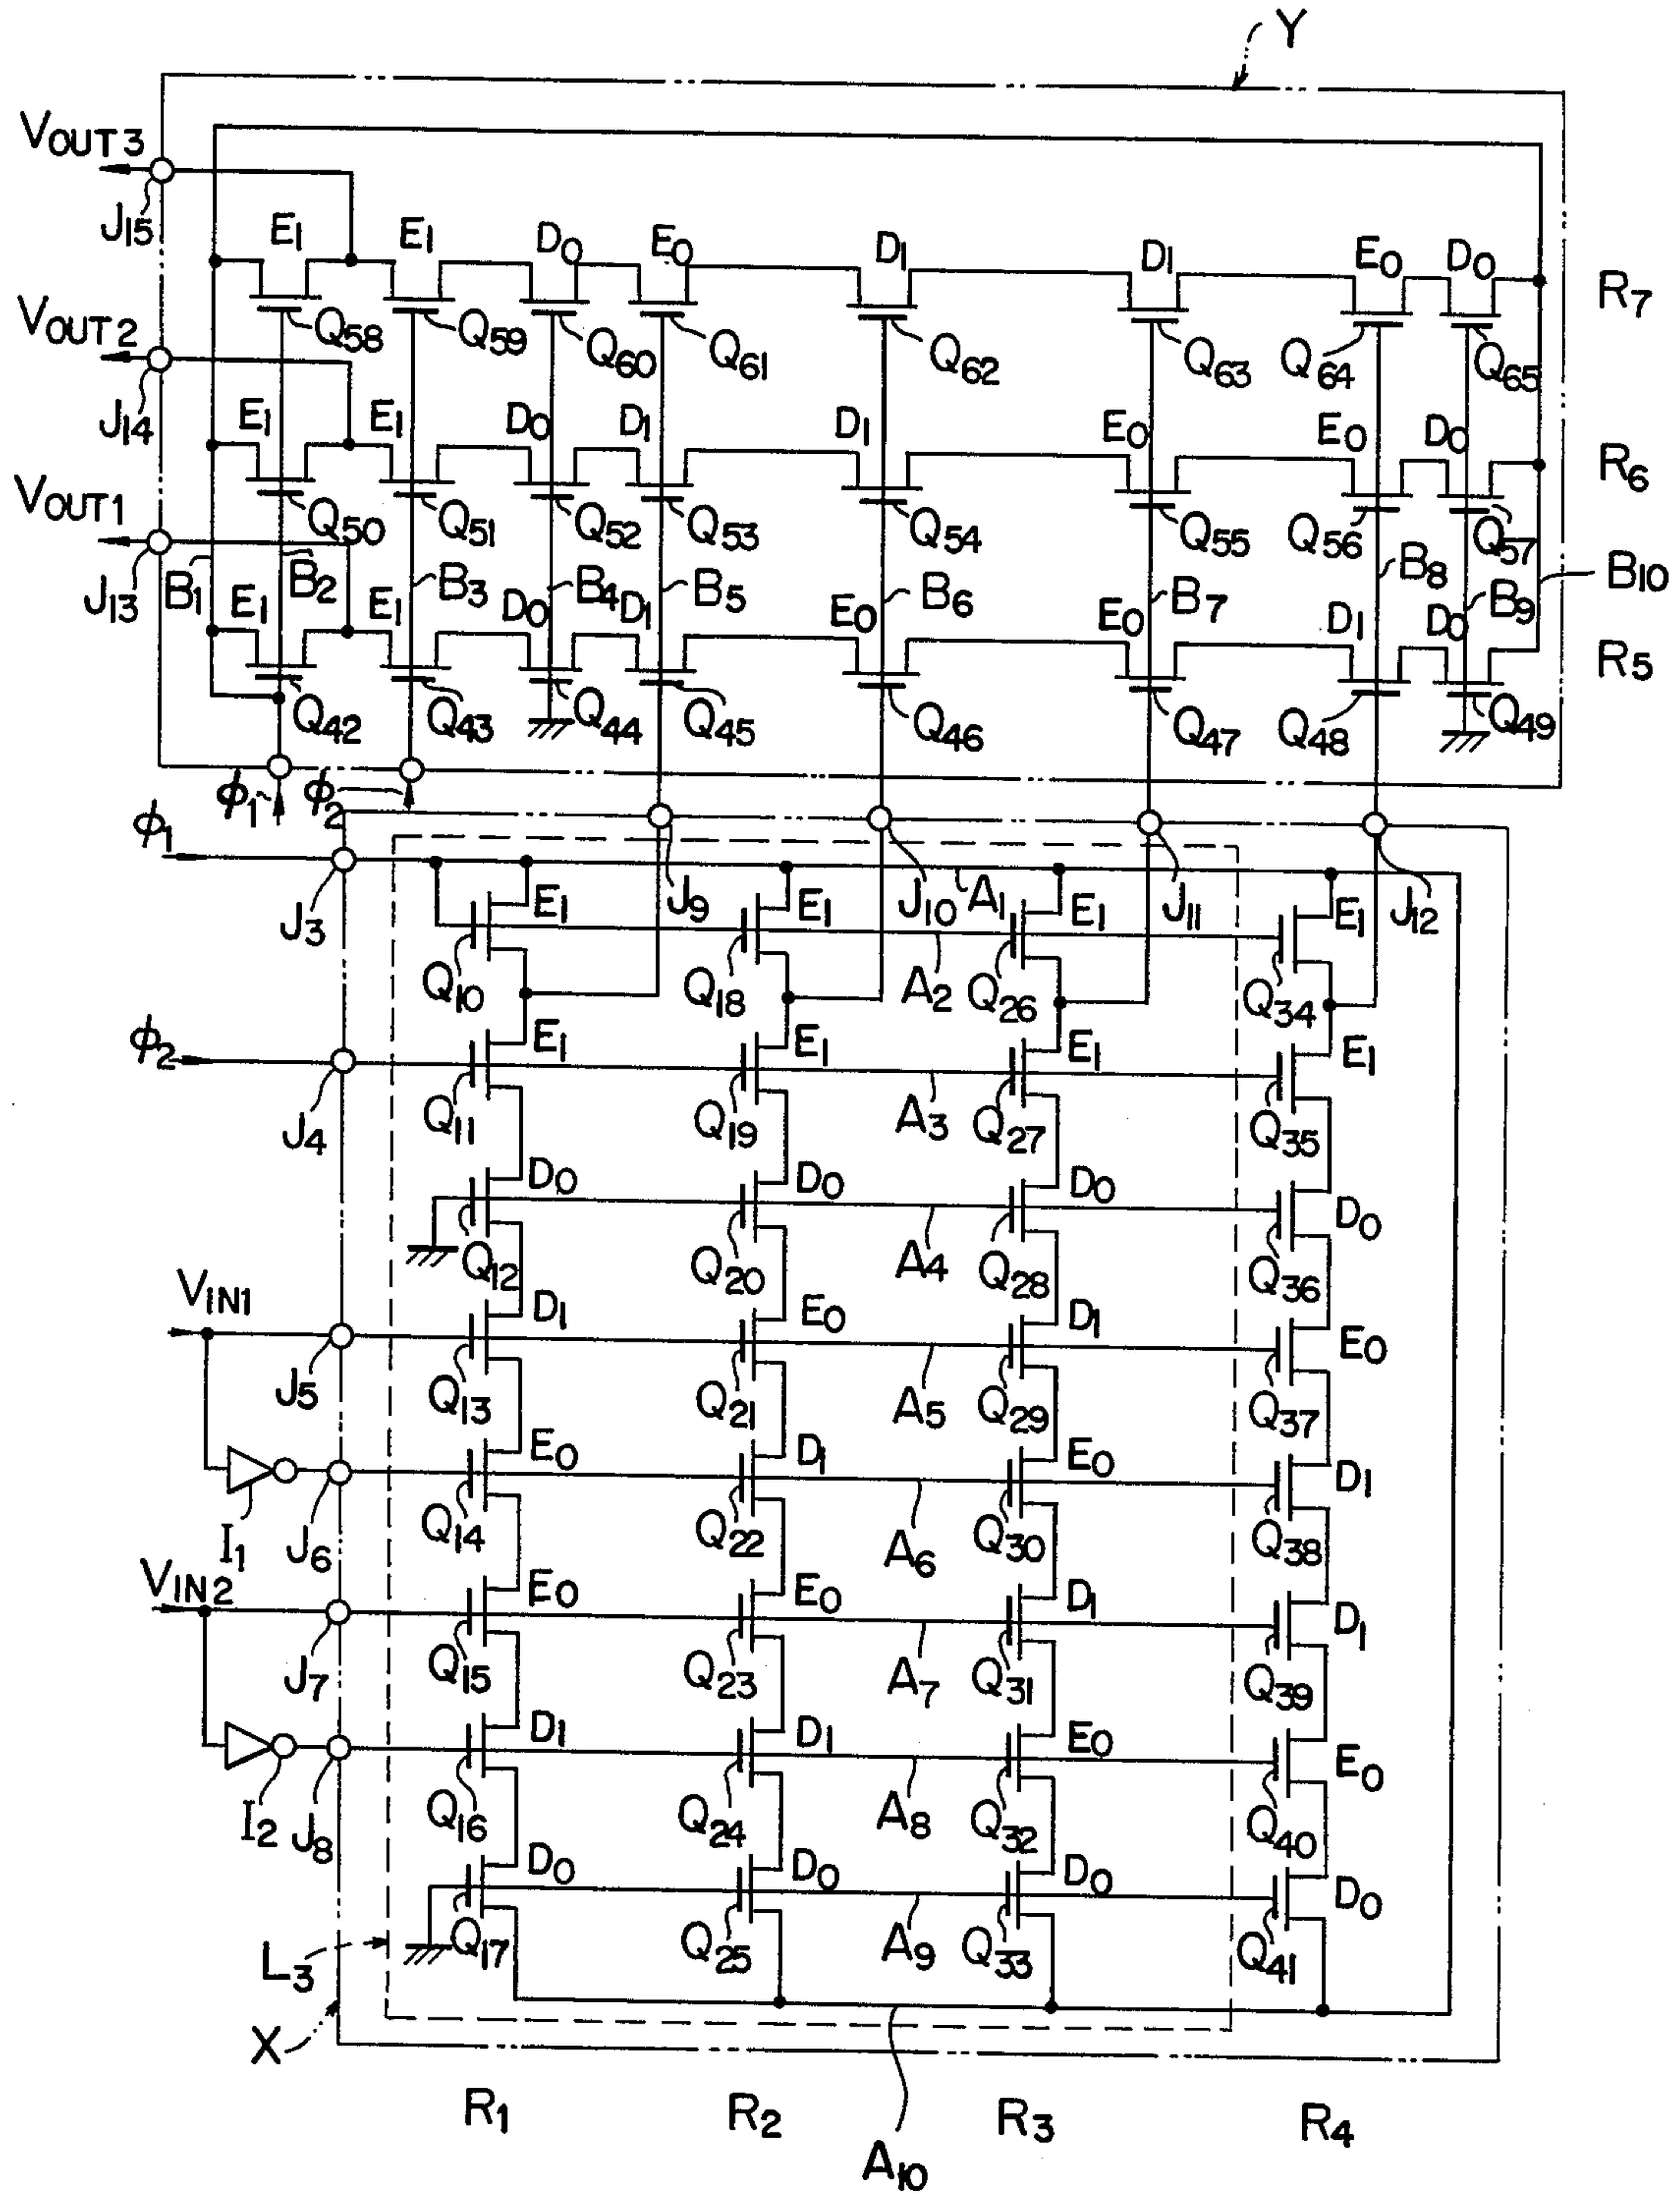 Y
VOUT3
J15
E1 E1 D0 E0 D1 D1 E0 D0
R7
Q58 Q59 Q60 Q61 Q62 Q63 Q64 Q65
VOUT2
J14
E1 E1 D0 D1 D1 E0 E0 D0
R6
Q50 Q51 Q52 Q53 Q54 Q55 Q56 Q57
VOUT1
J13
B1 B2 B3 B4 B5 B6 B7 B8 B9 B10
E1 E1 D0 D1 E0 E0 D1 D0
R5
Q42 Q43 Q44 Q45 Q46 Q47 Q48 Q49
ϕ1 ϕ2
ϕ1
J3 J9 J10 A1 J11 J12
E1 E1 E1 E1
Q10 Q18 A2 Q26 Q34
ϕ2
J4
E1 E1 E1 E1
Q11 Q19 A3 Q27 Q35
D0 D0 D0 D0
Q12 Q20 A4 Q28 Q36
VIN1
J5
D1 E0 D1 E0
Q13 Q21 A5 Q29 Q37
E0 D1 E0 D1
I1 J6 Q14 Q22 A6 Q30 Q38
VIN2
J7
E0 E0 D1 D1
Q15 Q23 A7 Q31 Q39
D1 D1 E0 E0
I2 J8 Q16 Q24 A8 Q32 Q40
D0 D0 D0 D0
L3 Q17 Q25 A9 Q33 Q41
X
R1 R2 R3 R4
A10